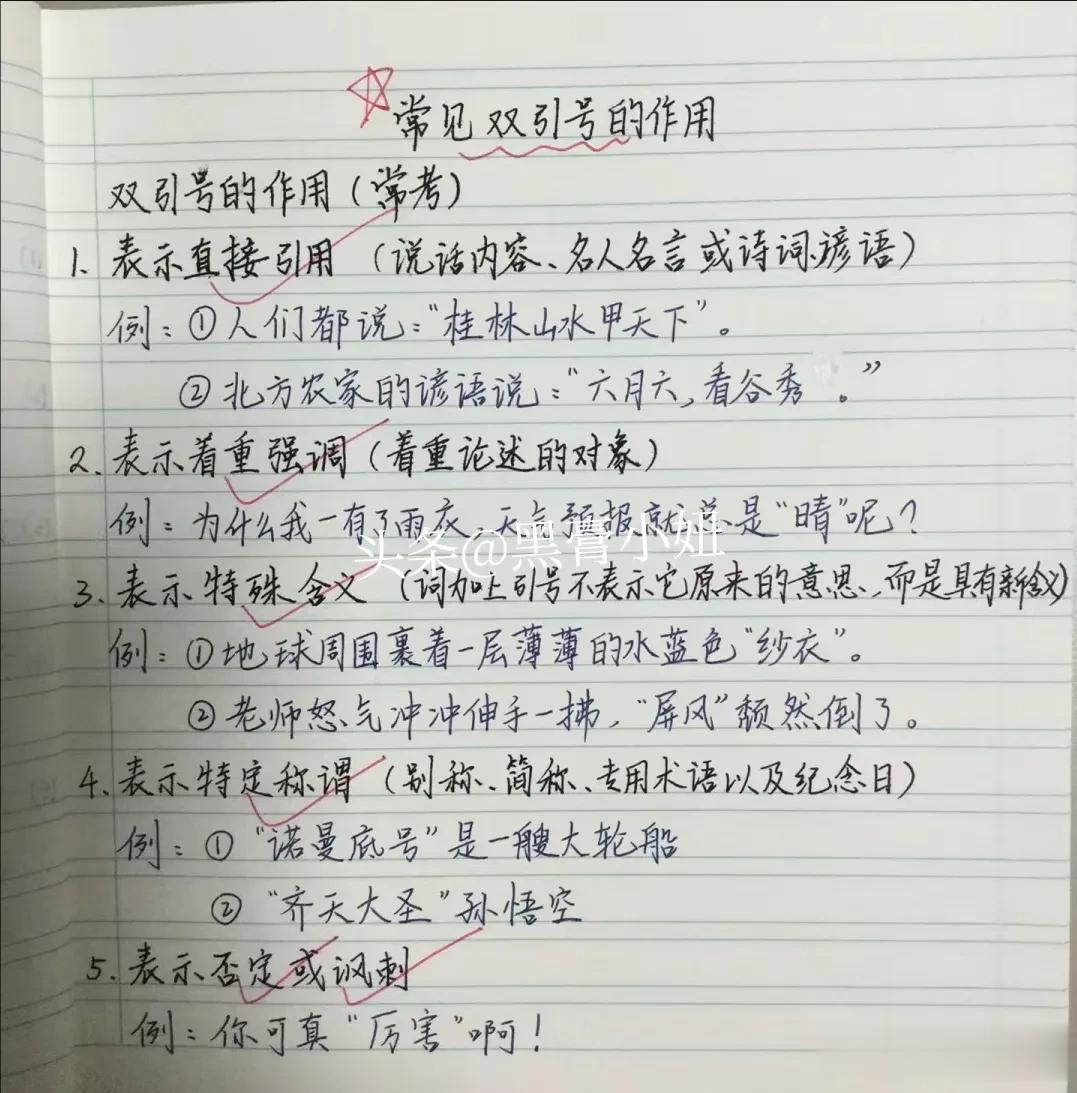 常见双引号的作用
双引号的作用（常考）
1、表示直接引用（说话内容、名人名言或诗词、谚语）
例：①人们都说：“桂林山水甲天下”。
②北方农家的谚语说：“六月六，看谷秀。”
2、表示着重强调（着重论述的对象）
例：为什么我一有了雨衣，天气预报就总是“晴”呢？
头条@黑膏小姐
3、表示特殊含义（词加上引号不表示它原来的意思，而是具有新含义）
例：①地球周围裹着一层薄薄的水蓝色“纱衣”。
②老师怒气冲冲伸手一拂，“屏风”颓然倒了。
4、表示特定称谓（别称、简称、专用术语以及纪念日）
例：①“诺曼底号”是一艘大轮船
②“齐天大圣”孙悟空
5、表示否定或讽刺
例：你可真“厉害”啊！